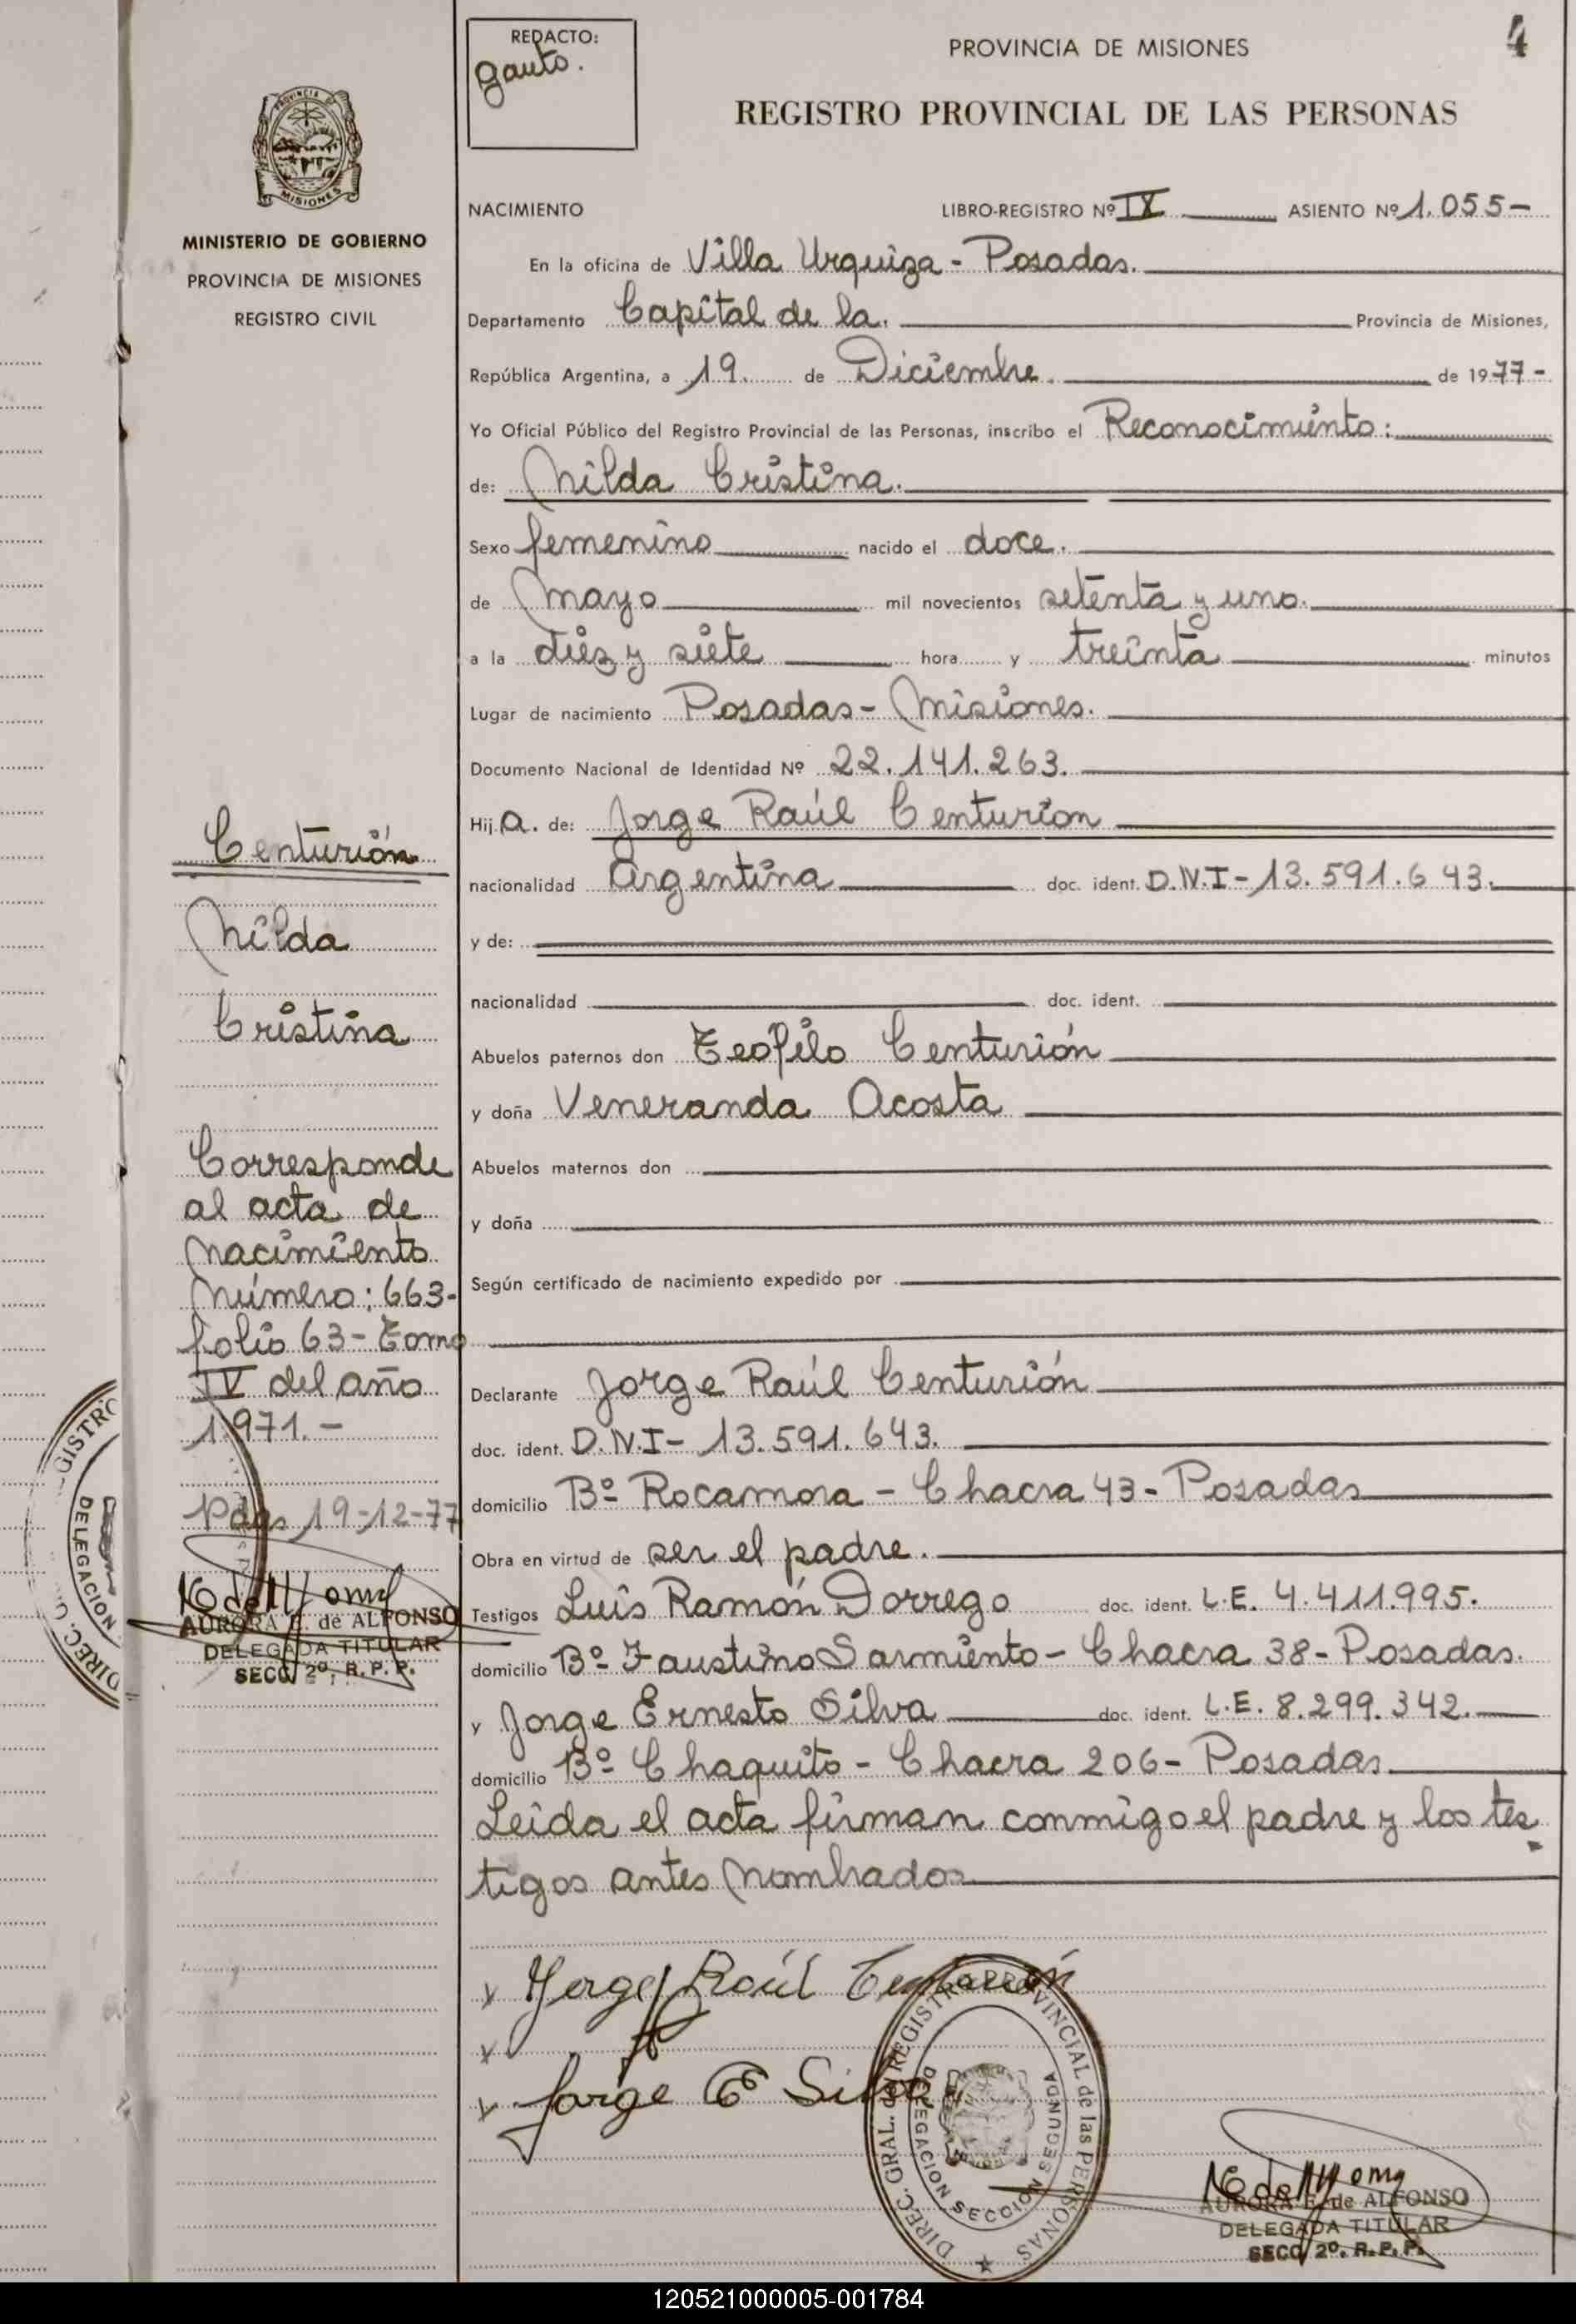 REDACTO:
Gauto.
PROVINCIA DE MISIONES
4
REGISTRO PROVINCIAL DE LAS PERSONAS
PROVINCIA DE
MISIONES
MINISTERIO DE GOBIERNO
PROVINCIA DE MISIONES
REGISTRO CIVIL
NACIMIENTO LIBRO-REGISTRO Nº IX ASIENTO Nº 1.055-
En la oficina de Villa Urquiza - Posadas.
Departamento Capital de la. Provincia de Misiones,
República Argentina, a 19. de Diciembre. de 1977-
Yo Oficial Público del Registro Provincial de las Personas, inscribo el Reconocimiento:
de: Nilda Cristina.
Sexo femenino nacido el doce.
de mayo mil novecientos setenta y uno.
a la diez y siete hora y treinta minutos
Lugar de nacimiento Posadas - Misiones.
Documento Nacional de Identidad Nº 22.141.263.
Hija. de: Jorge Raúl Centurion
nacionalidad Argentina doc. ident. D.N.I - 13.591.643.
y de:
nacionalidad doc. ident.
Abuelos paternos don Teófilo Centurión
y doña Veneranda Acosta
Abuelos maternos don
y doña
Según certificado de nacimiento expedido por
Declarante Jorge Raúl Centurión
doc. ident. D.N.I - 13.591.643.
domicilio Bº Rocamora - Chacra 43 - Posadas
Obra en virtud de ser el padre.
Testigos Luis Ramón Dorrego doc. ident. L.E. 4.411.995.
domicilio Bº Faustino Sarmiento - Chacra 38 - Posadas.
y Jorge Ernesto Silva doc. ident. L.E. 8.299.342.
domicilio Bº Chaquito - Chacra 206 - Posadas
Leida el acta firman conmigo el padre y los tes
tigos antes nombrados
Centurión
Nilda
Cristina
Corresponde
al acta de
nacimiento
número: 663-
folio 63 - Tomo
IV del año
1.971.-
Pdas 19-12-77
AURORA E. de ALFONSO
DELEGADA TITULAR
SECC. 2º. R. P. P.
GISTRO
DELEGACION
DIREC. G
Jorge Raúl Centurión
Jorge E Silva
DIREC. GRAL. del REGISTRO PROVINCIAL de las PERSONAS
DELEGACION SECCION SEGUNDA
AURORA E. de ALFONSO
DELEGADA TITULAR
SECC. 2º. R. P. P.
120521000005-001784